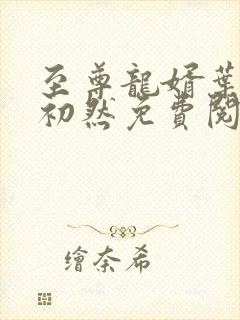 至尊龍婿葉
初然免費閱
繪奈希